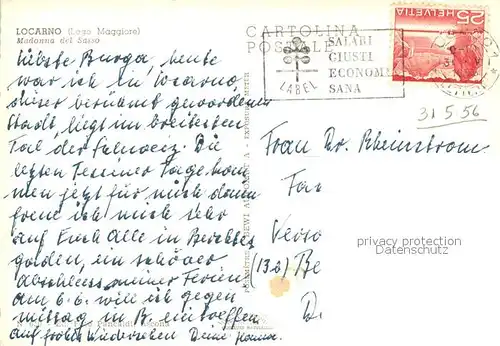 LOCARNO (Lago Maggiore)
Madonna del Sasso
CARTOLINA
POSTALE
SALARI
GIUSTI
ECONOMIA
SANA
LABEL
25 HELVETIA
31 5 56
Liebste Burga, heute
war ich in Locarno,
dieser berühmt gewordenen
Stadt, liegt im breitesten
Tal der Schweiz. Die
letzten Tessiner Tage kom
men jetzt für mich dann
freue ich mich sehr
auf Euch Alle in Berchtes
gaden, ein schöner
Abschluss meiner Ferien
am 6.6. will ich gegen
mittag in B. eintreffen
auf frohes Wiedersehen Deine
Frau Dr. Rheinstrom
Verso
(13b) Be
privacy protection
Datenschutz